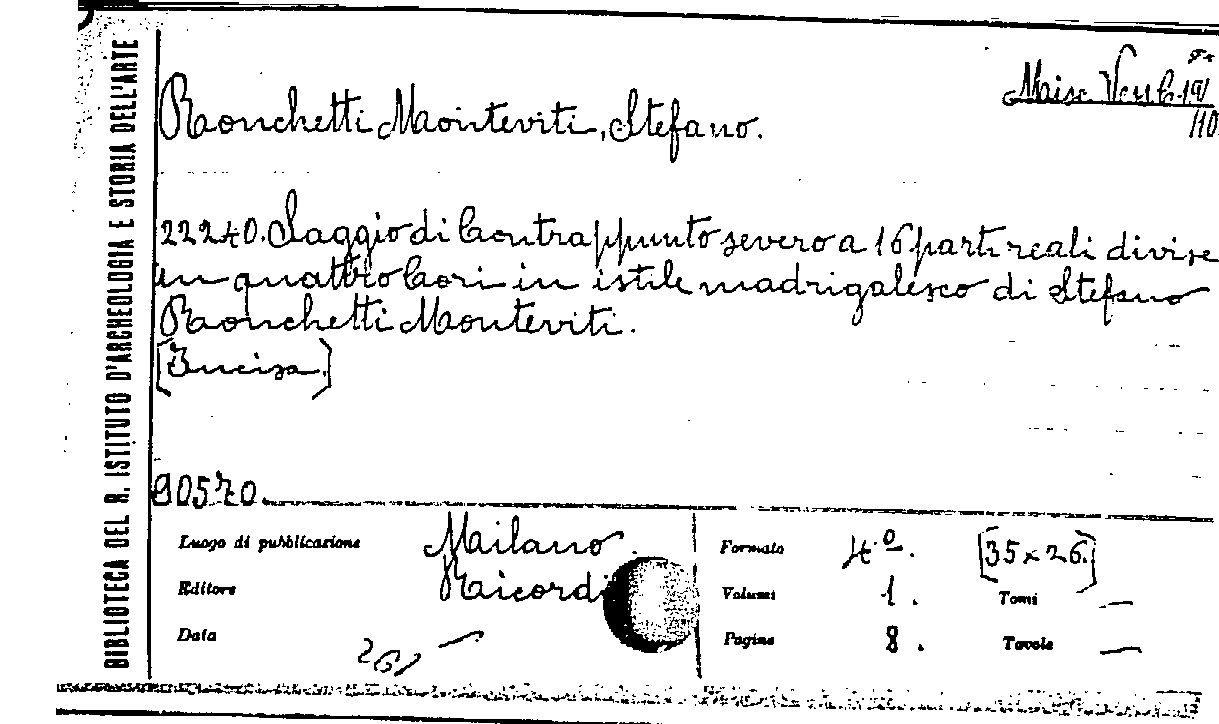 BIBLIOTECA DEL R. ISTITUTO D'ARCHEOLOGIA E STORIA DELL'ARTE
Misc. Vess. C. 191
/10
Ronchetti Monteviti, Stefano.
22240. Saggio di Contrappunto severo a 16 parti reali divise
in quattro Cori in istile madrigalesco di Stefano
Ronchetti Monteviti.
[Incisa.]
90570.
Luogo di pubblicazione Milano.
Editore Ricordi
Data —
Formato 4º. [35 x 26.]
Volumi 1. Tomi —
Pagine 8. Tavole —